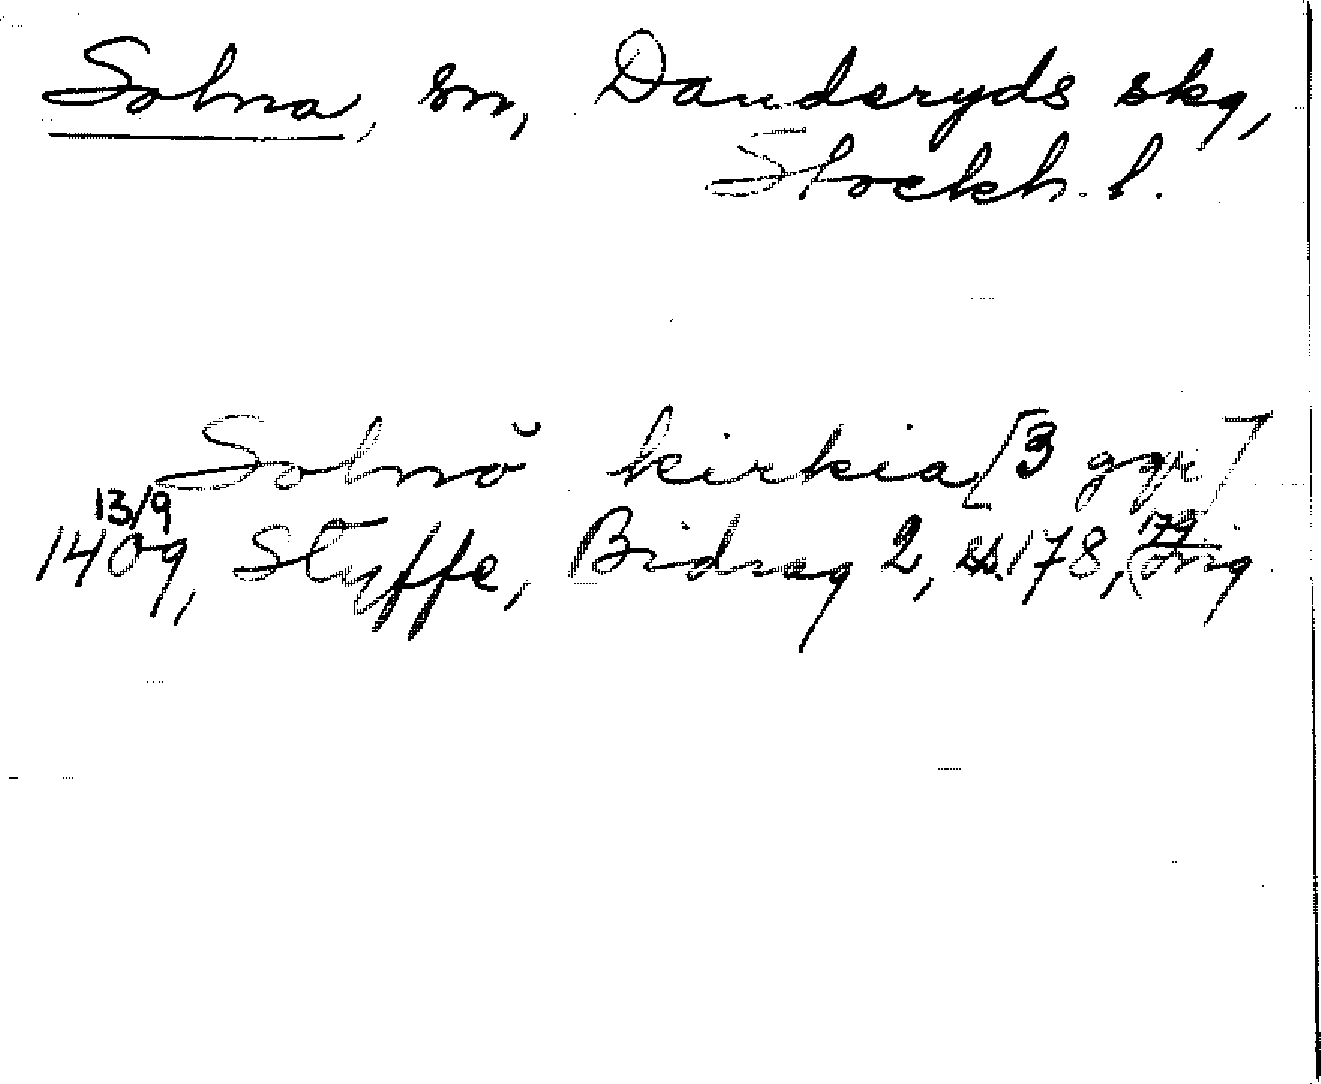 Solna, sn, Danderyds skg,
Stockh. l.
Solnö kirkia [3 ggr]
13/9
1409, Styffe, Bidrag 2, ss. 178, 179 (orig.